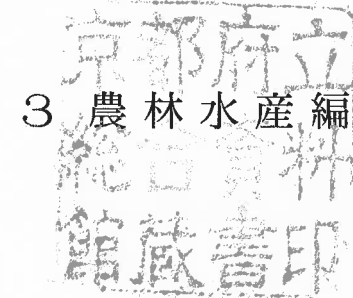 京都府立
3 農林水産編
総合資料
館蔵書印